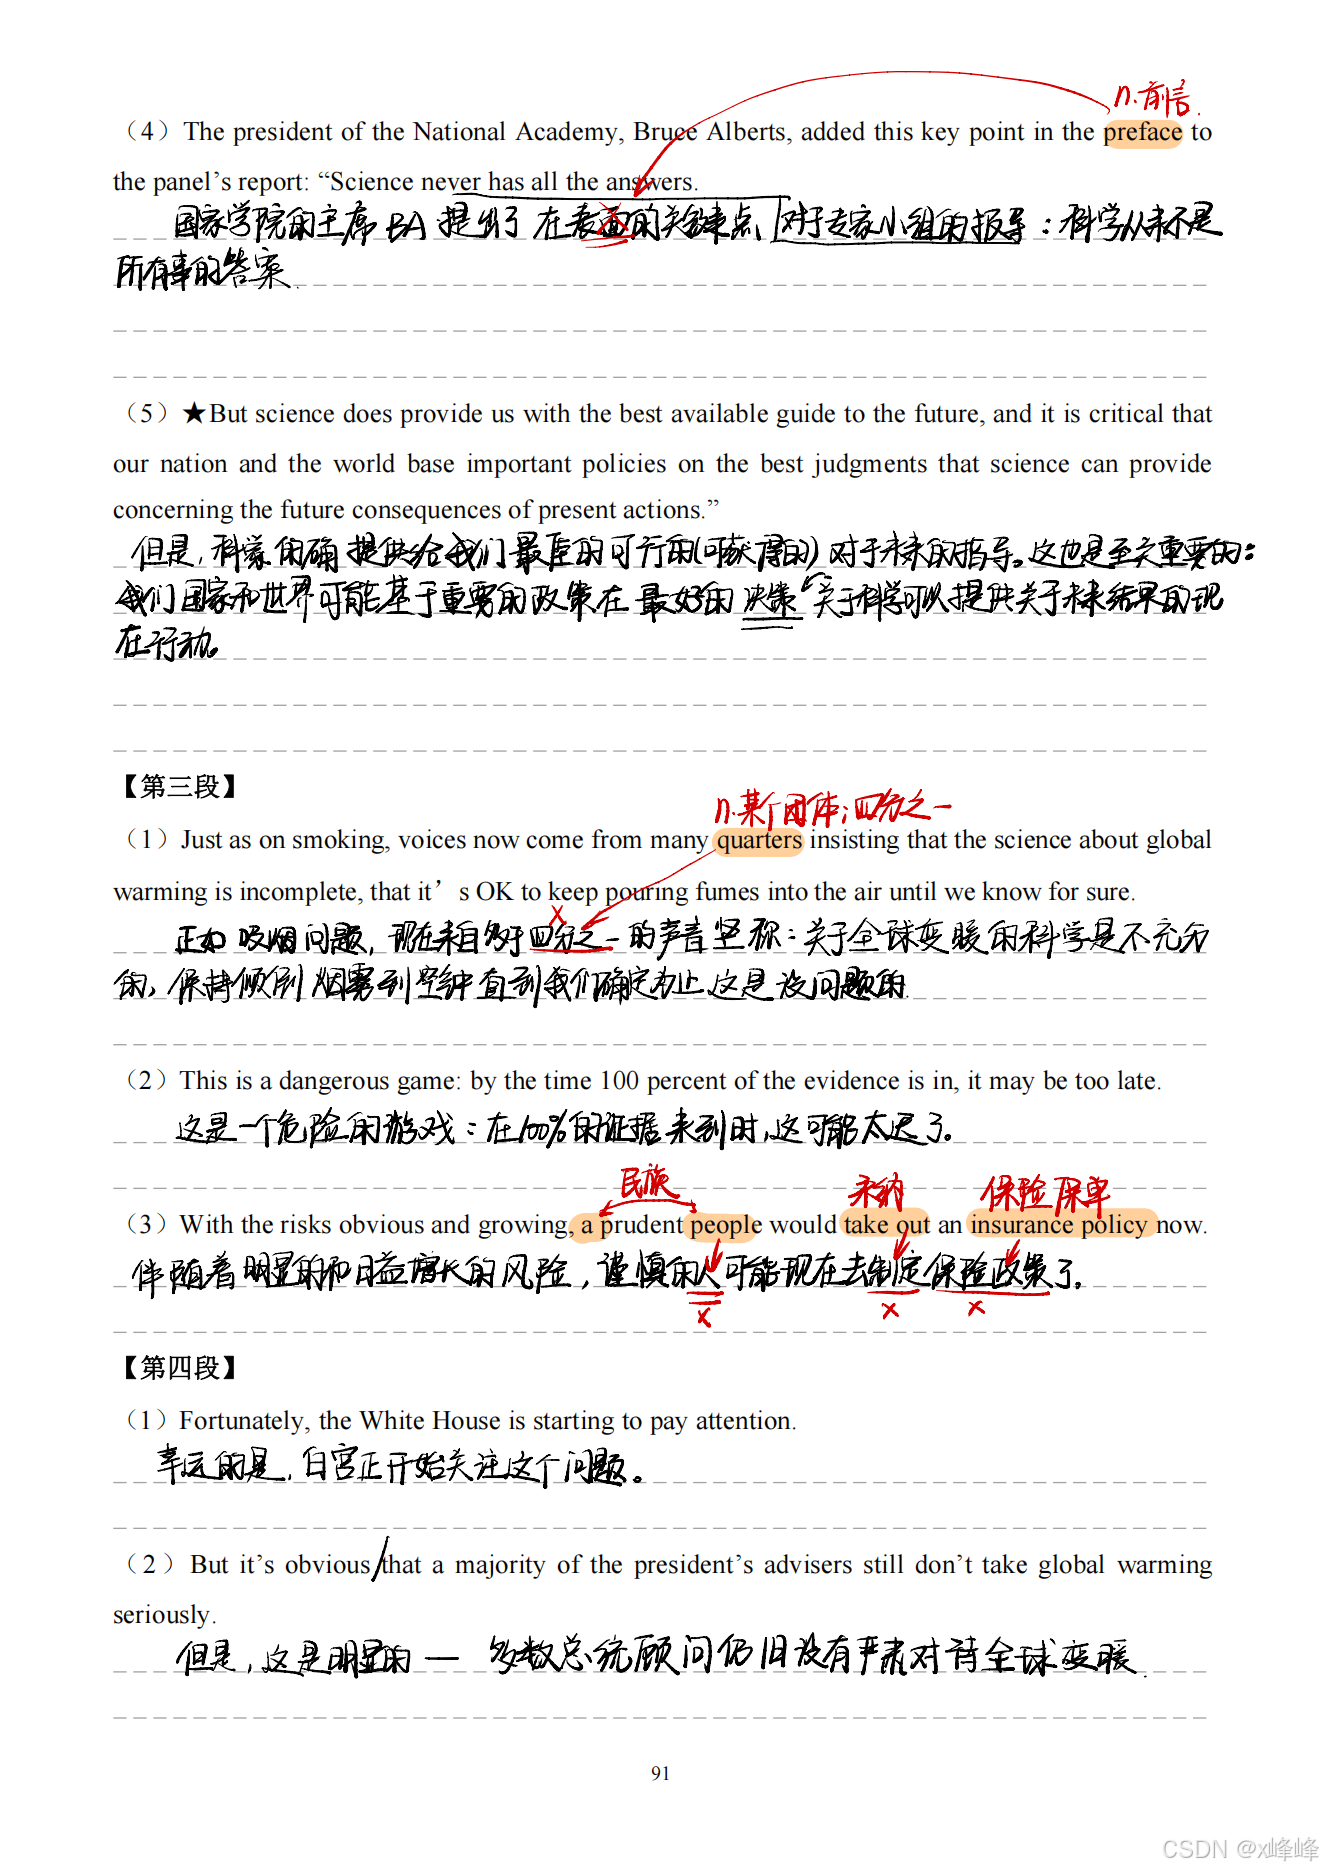 n.前言.
（4）The president of the National Academy, Bruce Alberts, added this key point in the preface to
the panel’s report: “Science never has all the answers.
国家学院的主席BA提出了在表面的关键点 对于专家小组的报导：科学从来不是
所有事的答案.
（5）★But science does provide us with the best available guide to the future, and it is critical that
our nation and the world base important policies on the best judgments that science can provide
concerning the future consequences of present actions.”
但是,科学的确提供给我们最佳的可行的(可获得的)对于未来的指导。这也是至关重要的:
我们国家和世界可能基于重要的政策在最好的决策 关于科学可以提供关于未来结果的现
在行动。
【第三段】
n.某个团体;四分之一
（1）Just as on smoking, voices now come from many quarters insisting that the science about global
warming is incomplete, that it’s OK to keep pouring fumes into the air until we know for sure.
正如吸烟问题, 现在来自多于四分之一的声音坚称:关于全球变暖的科学是不充分
的, 保持倾倒烟雾到空中直到我们确定为止这是没问题的.
（2）This is a dangerous game: by the time 100 percent of the evidence is in, it may be too late.
这是一个危险的游戏:在100%的证据来到时,这可能太迟了。
民族 采纳 保险保单
（3）With the risks obvious and growing, a prudent people would take out an insurance policy now.
伴随着明显的和日益增长的风险, 谨慎的人可能现在去制定保险政策了.
【第四段】
（1）Fortunately, the White House is starting to pay attention.
幸运的是,白宫正开始关注这个问题。
（2）But it’s obvious/that a majority of the president’s advisers still don’t take global warming
seriously.
但是,这是明显的— 多数总统顾问仍旧没有严肃对待全球变暖.
91
CSDN @x峰峰